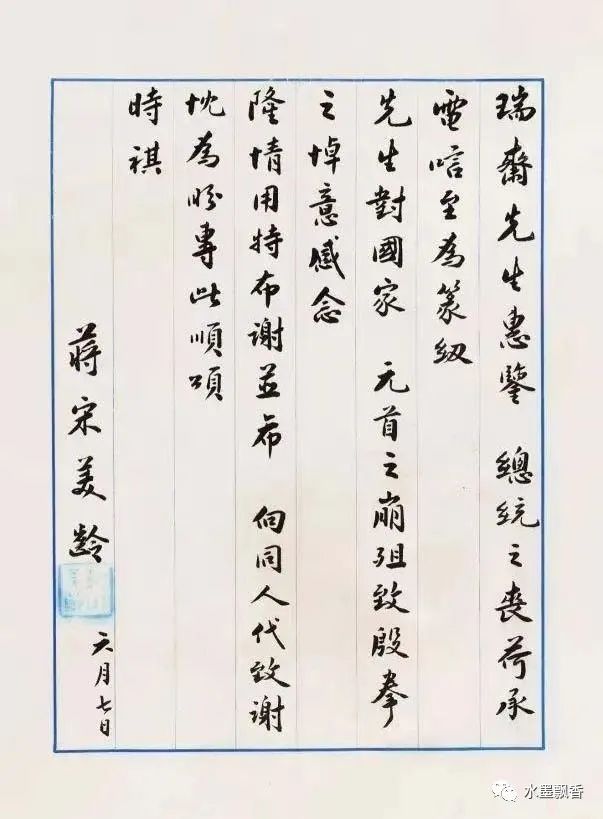 瑞齋先生惠鑒 總統之喪荷承
電唁至為篆纫
先生對國家 元首之崩殂致殷拳
之悼意感念
隆情用特布謝並希 向同人代致謝
忱為盼專此順頌
時祺
蔣宋美齡
六月七日
水墨飘香